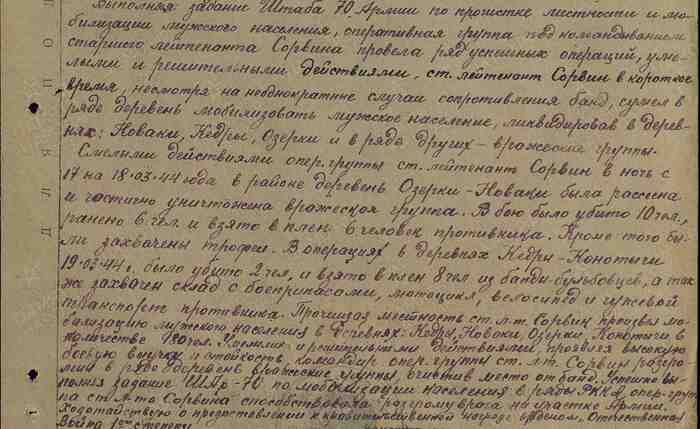 Выполняя: задание Штаба 70 Армии по прочистке местности и мо-
билизации мужского населения, оперативная группа под командованием
старшего лейтенанта Сорвина провела ряд успешных операций, уме-
лыми и решительными действиями, ст. лейтенант Сорвин в короткое
время, несмотря на неоднократные случаи сопротивления банд, сумел в
ряде деревень мобилизовать мужское население, ликвидировав в дерев-
нях: Новаки, Кедры, Озерки и в ряде других – вражеские группы.
Смелыми действиями опер. группы ст. лейтенант Сорвин в ночь с
17 на 18.03.44 года в районе деревень Озерки – Новаки была рассеяна
и частично уничтожена вражеская группа. В бою было убито 10 чел.,
ранено 6 чел. и взято в плен 6 человек противника. Кроме того бы-
ли захвачены трофеи. В операциях в деревнях Кедры – Конотыги
19.03.44 г. было убито 2 чел, и взято в плен 8 чел из банды бульбовцев, а так
же захвачен склад с боеприпасами, мотоцикл, велосипед и гужевой
транспорт противника. Прочищая местность ст. л-т. Сорвин произвел мо-
билизацию мужского населения в деревнях: Кедры, Новаки, Озерки, Конотыги в
количестве чел. Смелыми и решительными действиями, проявляя высокую
боевую выучку и стойкость, командир опер. группы ст. л-т. Сорвин разгро-
мил в ряде деревень вражеские группы, очистив место от банд. Успешно вы-
полняя задание Шта-70 по мобилизации населения в ряды РККА, опер-груп-
па ст. л-та Сорвина способствовала разгрому врага на участке Армии.
Ходатайствую о предоставлении к правительственной награде орденом, Отечественная
Война 1ой степени
Д Л Я П О Д